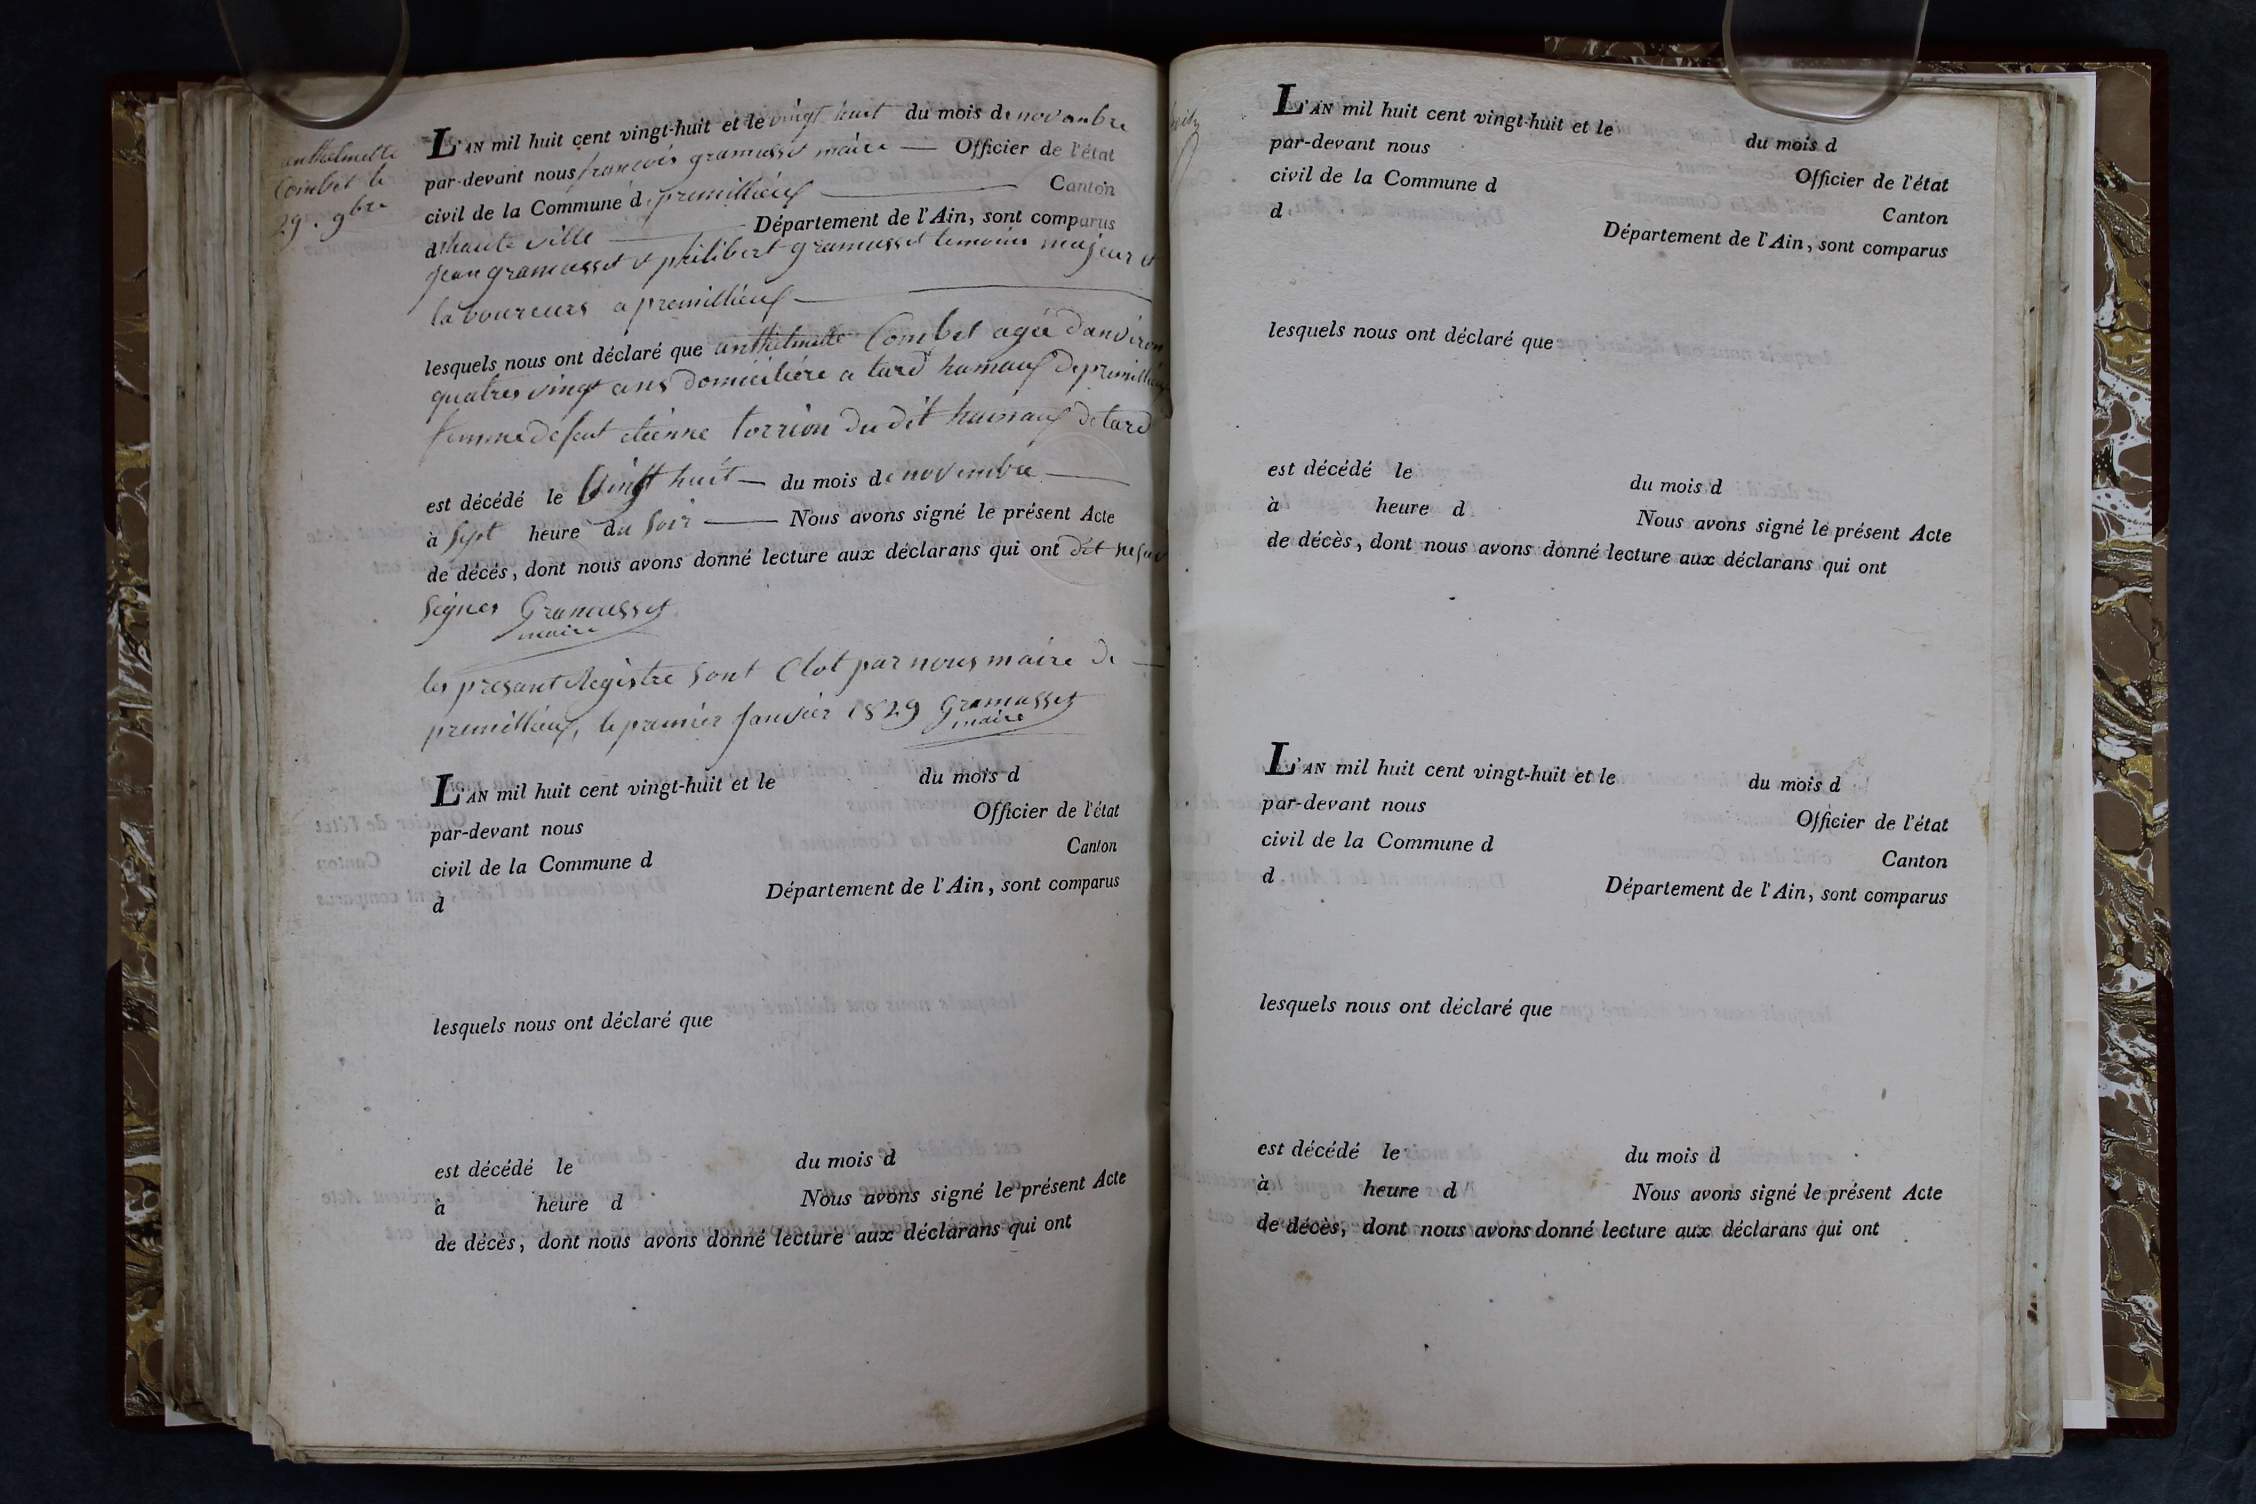 anthelmette
Combet le
29. 9bre
L'AN mil huit cent vingt-huit et le vingt huit du mois de novembre
par-devant nous francois gramusset maire — Officier de l'état
civil de la Commune de premillieux — Canton
d'hauteville — Département de l'Ain, sont comparus
jean gramusset et philibert gramusset temoins majeur et
laboureurs a premillieux —
lesquels nous ont déclaré que anthelmette Combet agée d'anviron
quatres vingt ans domiciliére a tard hamaux de premillieux
femme de feut etienne torrion du dit hamaux de tard
est décédé le vingt huit — du mois de novembre —
à sept heure du soir — Nous avons signé le présent Acte
de décès, dont nous avons donné lecture aux déclarans qui ont dit ne
signer Gramusset
maire
les presant Registre sont Clot par nous maire de —
premillieux, le premier janvier 1829 Gramusset
maire
L'AN mil huit cent vingt-huit et le du mois d
par-devant nous Officier de l'état
civil de la Commune d Canton
d Département de l'Ain, sont comparus
lesquels nous ont déclaré que
est décédé le du mois d
à heure d Nous avons signé le présent Acte
de décès, dont nous avons donné lecture aux déclarans qui ont
L'AN mil huit cent vingt-huit et le du mois d
par-devant nous Officier de l'état
civil de la Commune d Canton
d Département de l'Ain, sont comparus
lesquels nous ont déclaré que
est décédé le du mois d
à heure d Nous avons signé le présent Acte
de décès, dont nous avons donné lecture aux déclarans qui ont
L'AN mil huit cent vingt-huit et le du mois d
par-devant nous Officier de l'état
civil de la Commune d Canton
d Département de l'Ain, sont comparus
lesquels nous ont déclaré que
est décédé le du mois d
à heure d Nous avons signé le présent Acte
de décès, dont nous avons donné lecture aux déclarans qui ont